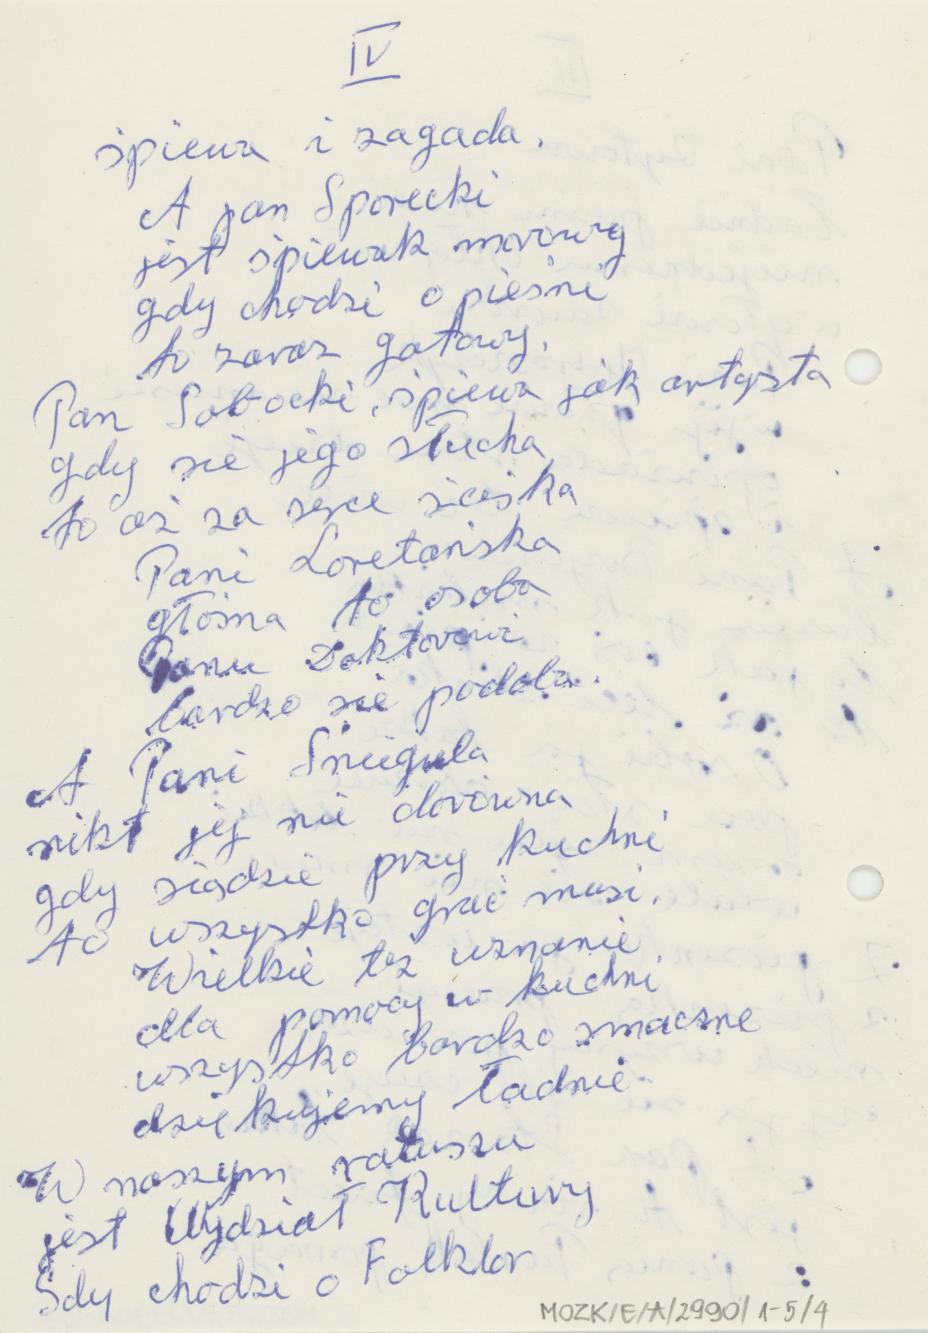 IV
śpiewa i zagada.
A jan Sporecki
jest śpiewak morowy
gdy chodzi o pieśni
to zaraz gotowy.
Pan Sobocki śpiewa jak artysta
gdy sie jego słucha
to aż za serce sciska
Pani Loretańska
głośna to osoba
Panu Doktorowi
bardzo sie podoba.
A Pani Śnieguła
nikt jej nie dorówna
gdy siądzie przy kuchni
to wszystko grać musi.
Wielkie też uznanie
dla pomocy w kuchni
wszystko bardzo smaczne
dziękujemy ładnie.
W naszym ratuszu
jest Wydział Kultury
Gdy chodzi o Folklor
MOZK/E/A/2990/1-5/4